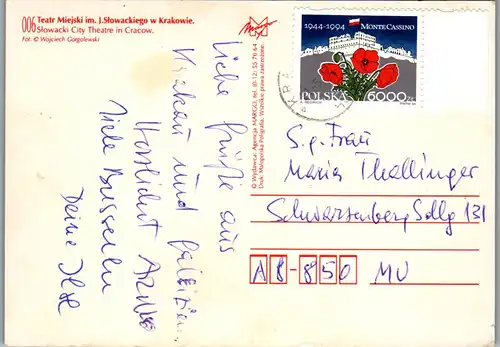 006 Teatr Miejski im. J.Słowackiego w Krakowie.
Słowacki City Theatre in Cracow.
Fot. © Wojciech Gorgolewski
© Wydawca: Agencja MARGO, tel. (0-12) 55 76 64
Druk: Małopolska Poligrafia. Wszelkie prawa zastrzeżone.
1944-1994 MONTE CASSINO
POLSKA 6000 ZŁ
Liebe Grüße aus
Krakau und Galizien.
Herzlichst
Viele Busserln
Deine Ilse
S.g. Frau
Maria Thallinger
Schwarzenberg Sdlg 131
A8-850 MU